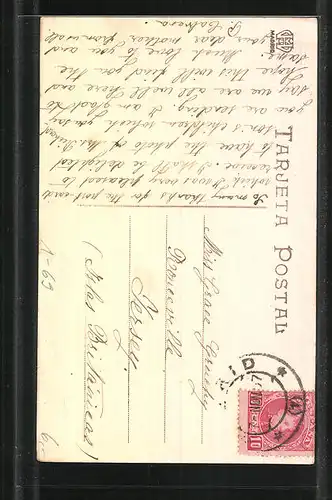 TARJETA POSTAL
So many thanks for the post-card
which I was very pleased to
receive. I shall be delighted
to have the photo of Mrs
ton's children which you say
you are sending. I am glad to
say we are all well here and
hope this will find you the
same. Much love to you and
your dear mother from all
P. Cabrera.
Miss Grace
Rouseville
Jersey.
(Islas Británicas)
10
MADRID